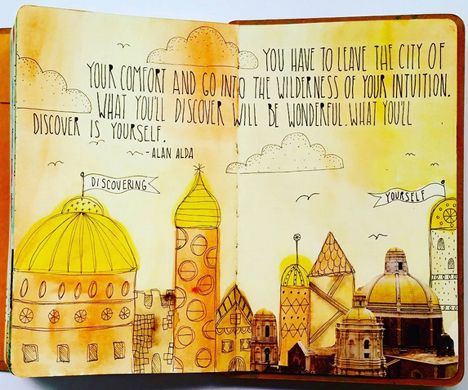 YOU HAVE TO LEAVE THE CITY OF
YOUR COMFORT AND GO INTO THE WILDERNESS OF YOUR INTUITION.
WHAT YOU'LL DISCOVER WILL BE WONDERFUL. WHAT YOU'LL
DISCOVER IS YOURSELF.
-ALAN ALDA
DISCOVERING
YOURSELF